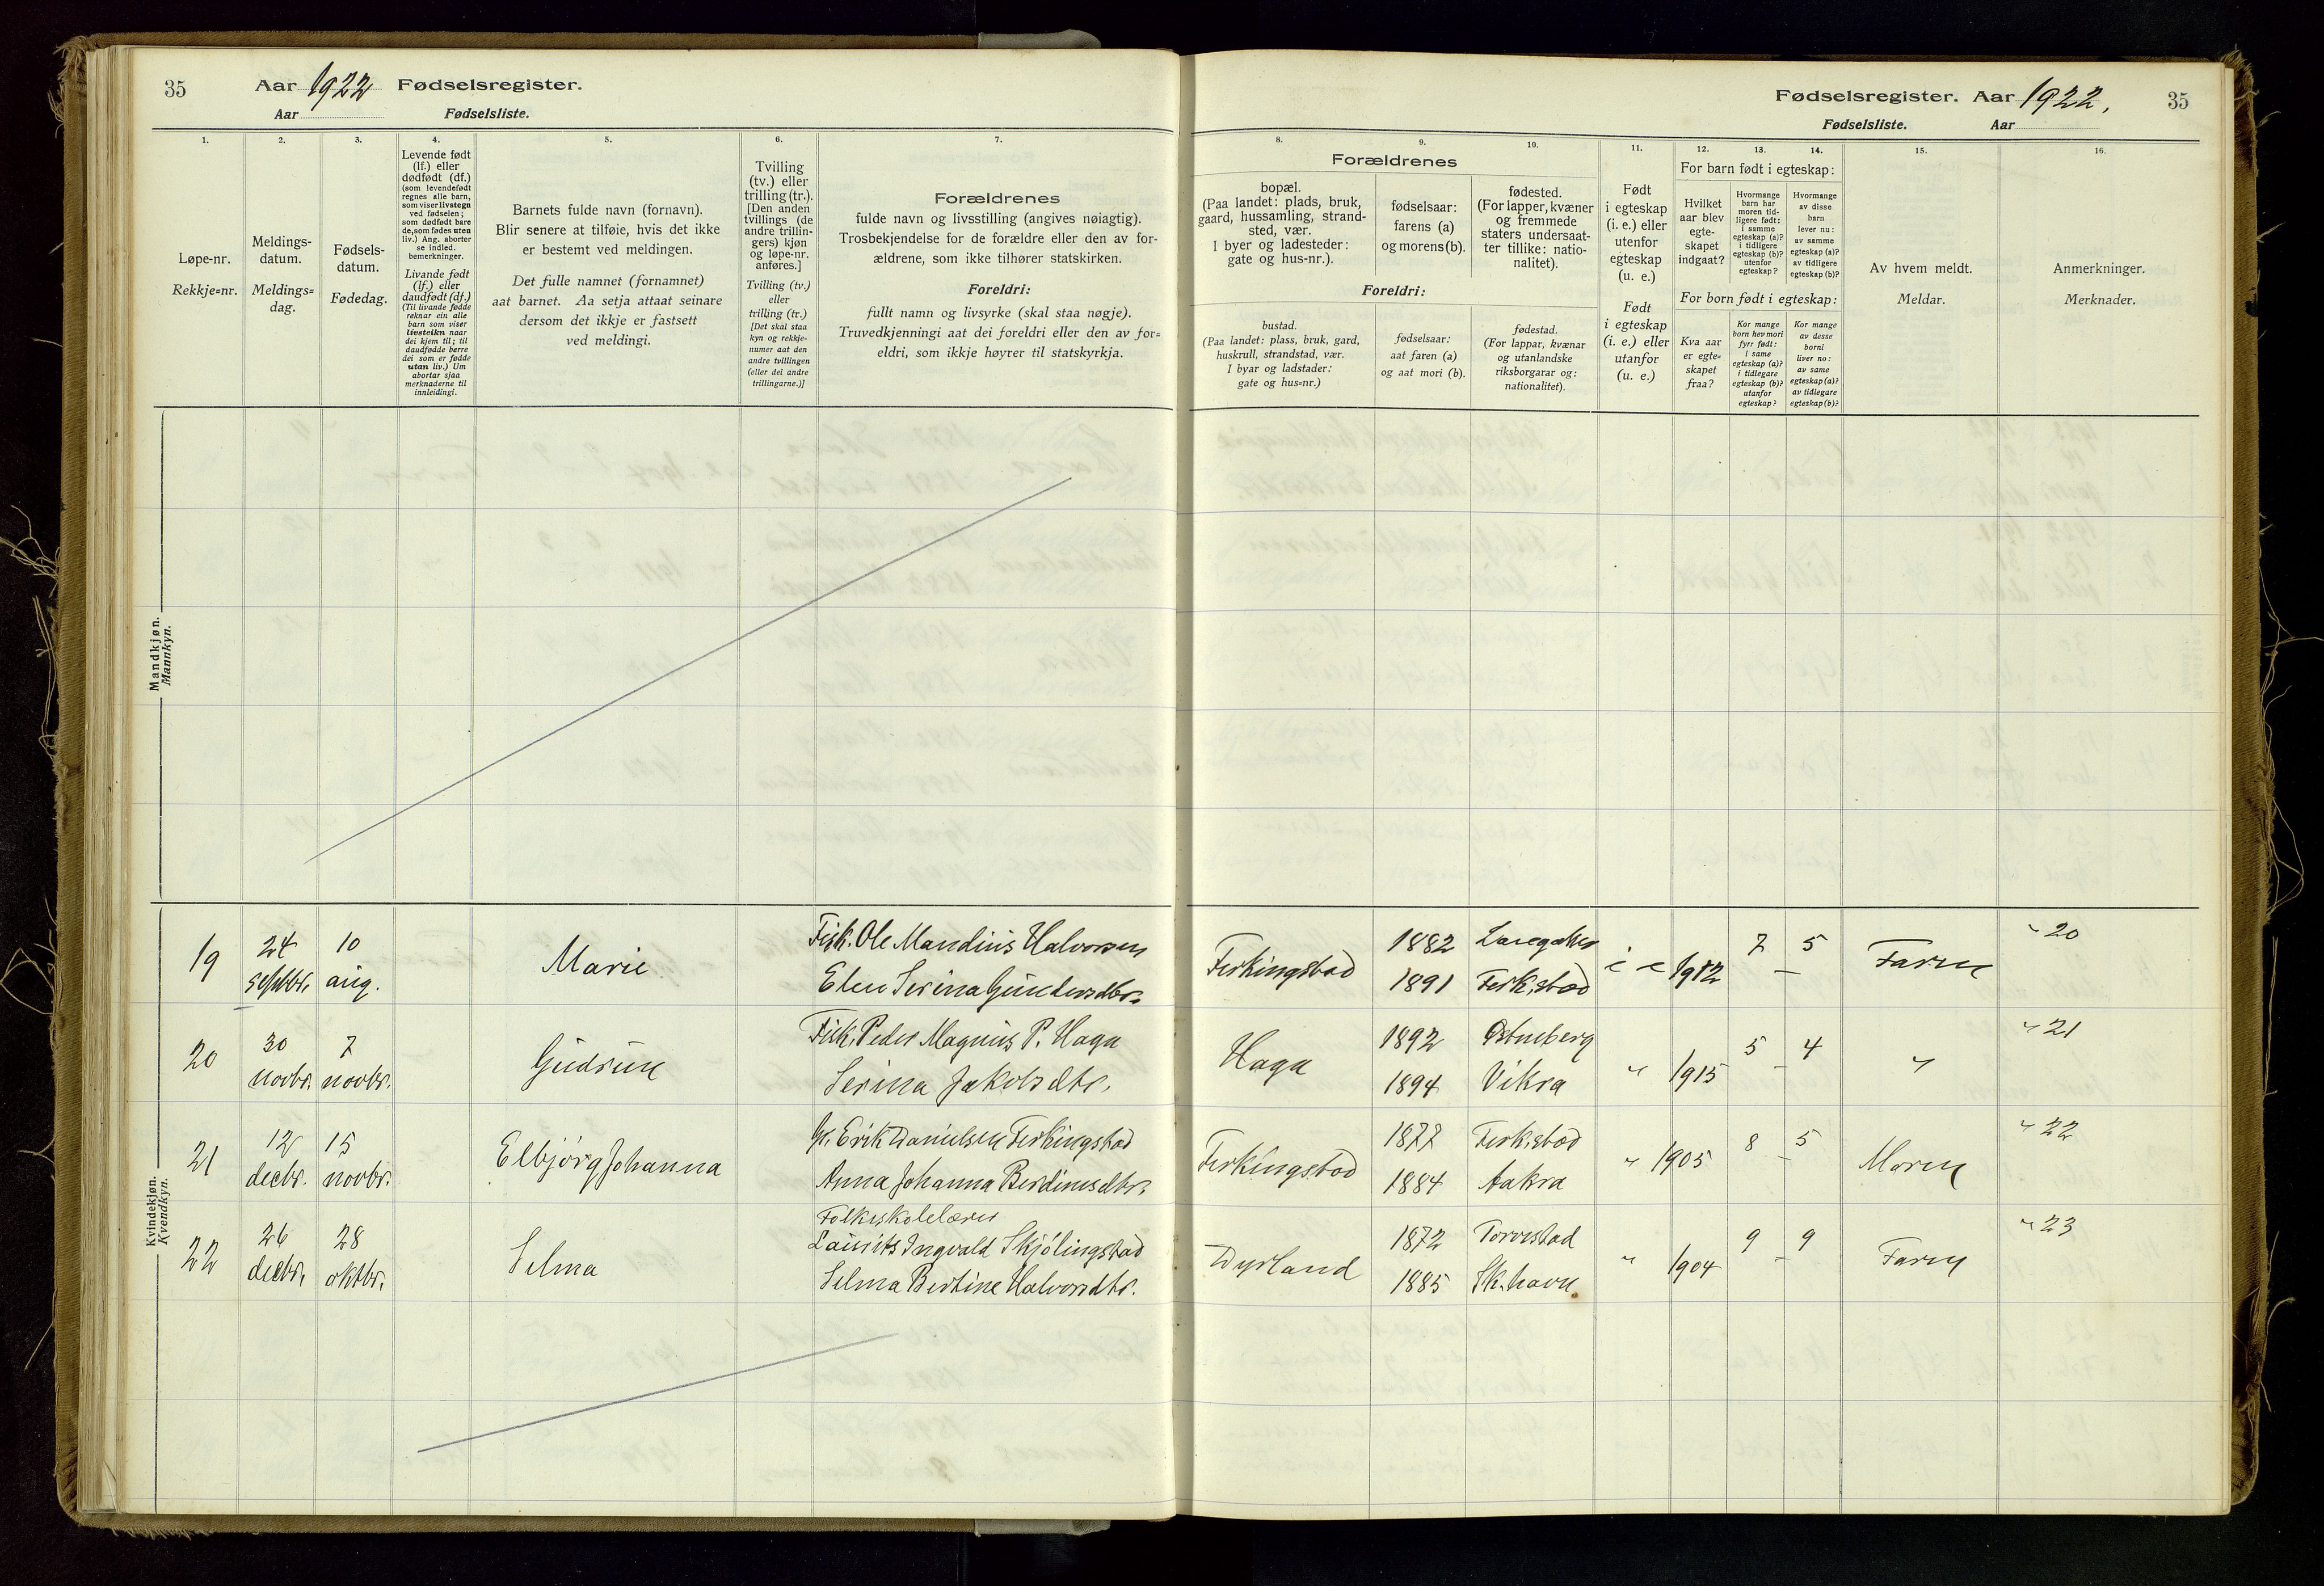 35
Aar 1922 Fødselsregister.
Aar Fødselsliste.
Fødselsregister. Aar 1922.
35
Fødselsliste. Aar
1. 2. 3. 4. 5. 6. 7.
Løpe-nr.
Rekkje=nr.
Meldings-
datum.
Meldings=
dag.
Fødsels-
datum.
Fødedag.
Levende født
(lf.) eller
dødfødt (df.)
(som levendefødt
regnes alle barn,
som viser livstegn
ved fødselen;
som dødfødt bare
de, som fødes uten
liv.) Ang. aborter
se indled.
bemerkninger.
Livande født
(lf.) eller
daudfødt (df.)
(Til livande fødde
reknar ein alle
barn som viser
livsteikn naar
dei kjem til; til
daudfødde berre
dei som er fødde
utan liv.) Um
abortar sjaa
merknaderne til
innleidingi.
Barnets fulde navn (fornavn).
Blir senere at tilføie, hvis det ikke
er bestemt ved meldingen.
Det fulle namnet (fornamnet)
aat barnet. Aa setja attaat seinare
dersom det ikkje er fastsett
ved meldingi.
Tvilling
(tv.) eller
trilling (tr.).
[Den anden
tvillings (de
andre trillin-
gers) kjøn
og løpe-nr.
anføres.]
Tvilling (tv.)
eller
trilling (tr.)
[Det skal staa
kyn og rekkje-
numer aat den
andre tvillingen
(eller dei andre
trillingarne.)]
Forældrenes
fulde navn og livsstilling (angives nøiagtig).
Trosbekjendelse for de forældre eller den av for-
ældrene, som ikke tilhører statskirken.
Foreldri:
fullt namn og livsyrke (skal staa nøgje).
Truvedkjenningi aat dei foreldri eller den av for=
eldri, som ikkje høyrer til statskyrkja.
8. 9. 10. 11. 12. 13. 14. 15. 16.
Forældrenes
bopæl.
(Paa landet: plads, bruk,
gaard, hussamling, strand-
sted, vær.
I byer og ladesteder:
gate og hus-nr.).
fødselsaar:
farens (a)
og morens (b).
fødested.
(For lapper, kvæner
og fremmede
staters undersaat-
ter tillike: natio-
nalitet).
Foreldri:
bustad.
(Paa landet: plass, bruk, gard,
huskrull, strandstad, vær.
I byar og ladstader:
gate og hus=nr.)
fødselsaar:
aat faren (a)
og aat mori (b).
fødestad.
(For lappar, kvænar
og utanlandske
riksborgarar og:
nationalitet).
Født
i egteskap
(i. e.) eller
utenfor
egteskap
(u. e.)
Født
i egteskap
(i. e.) eller
utanfor
(u. e.)
For barn født i egteskap:
Hvilket
aar blev
egte-
skapet
indgaat?
Hvormange
barn har
moren tid-
ligere født:
i samme
egteskap (a)?
i tidligere
egteskap (b)?
utenfor
egteskap?
Hvormange
av disse
barn
lever nu:
av samme
egteskap (a)?
av tidligere
egteskap (b)?
For born født i egteskap:
Kva aar
er egte=
skapet
fraa?
Kor mange
born hev mori
fyrr født:
i same
egteskap (a)?
i tidlegare
egteskap (b)?
utanfor
egteskap?
Kor mange
av desse
borni
liver no:
av same
egteskap (a)?
av tidlegare
egteskap (b)?
Av hvem meldt.
Meldar.
Anmerkninger.
Merknader.
Mandkjøn.
Mannkyn.
Kvindekjøn.
Kvendkyn.
19 24 septbr. 10 aug. Marie Fisk. Ole Mandius Halvorsen
Elen Serina Gundersdtr.
Ferkingstad 1882
1891 Ferk.stad i e 1912 7 – 5 Faren " 20
20 30 novbr. 7 novbr. Gudrun Fisk. Peder Magnus P. Haga
Serina Jakobsdtr.
Haga 1892 Østueberg
1894 Vikra " 1915 5 – 4 " " 21
21 12 decbr. 15 novbr. Elbjørg Johanna Gr. Erik Danielsen Ferkingstad
Anna Johanna Berdinesdtr.
Ferkingstad 1877 Ferk.stad
1884 Aakra " 1905 8 – 5 Moren " 22
22 26 decbr. 28 oktbr. Selma Folkeskolelærer
Laurits Ingvald Skjølingstad
Selma Bertine Halvorsdtr.
Dyrland 1872 Torvestad
1885 Sk.havn. " 1904 9 – 9 Faren " 23